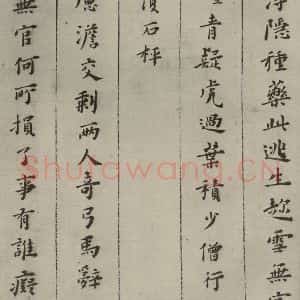 隱種藥此逃生趂雪無
青疑虎過葉積少僧行
石枰
澹交剩兩人奇弓馬辭
無官何所損了事有誰癡
Shufawang.CN